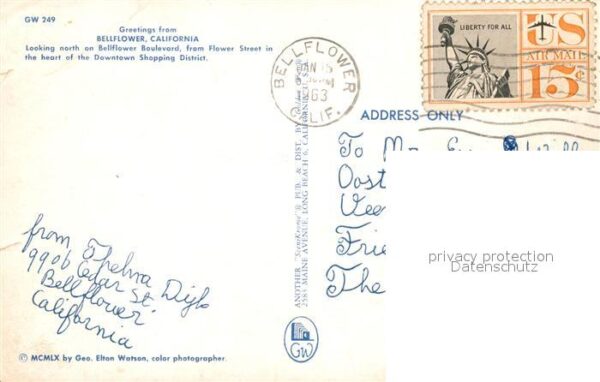 GW 249
Greetings from
BELLFLOWER, CALIFORNIA
Looking north on Bellflower Boulevard, from Flower Street in
the heart of the Downtown Shopping District.
BELLFLOWER
JAN 15
1963
CALIF.
LIBERTY FOR ALL
US
AIR MAIL
15¢
ADDRESS ONLY
To
Oost
Vee
Frie
The
privacy protection
Datenschutz
ANOTHER "ScenKrome"® PUB. & DIST. BY
2585 MAINE AVENUE, LONG BEACH 6, CALIFORNIA
from Thelma
9906 Cedar St.
Bellflower
California
GW
© MCMLX by Geo. Elton Watson, color photographer.